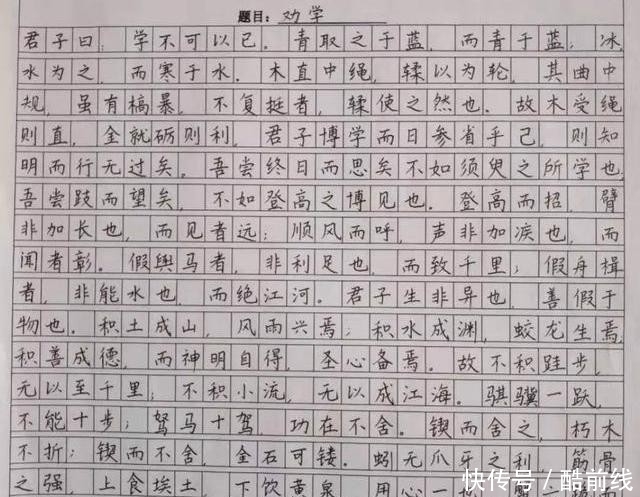 题目: 劝学
君子曰:学不可以已.青取之于蓝,而青于蓝;冰
水为之,而寒于水.木直中绳,輮以为轮,其曲中
规,虽有槁暴,不复挺者,輮使之然也.故木受绳
则直,金就砺则利,君子博学而日参省乎己,则知
明而行无过矣.吾尝终日而思矣不如须臾之所学也
吾尝跂而望矣,不如登高之博见也.登高而招,臂
非加长也,而见者远;顺风而呼,声非加疾也,而
闻者彰.假舆马者,非利足也,而致千里;假舟楫
者,非能水也,而绝江河.君子生非异也,善假于
物也.积土成山,风雨兴焉;积水成渊,蛟龙生焉;
积善成德,而神明自得,圣心备焉.故不积跬步,
无以至千里;不积小流,无以成江海.骐骥一跃,
不能十步;驽马十驾,功在不舍.锲而舍之,朽木
不折;锲而不舍,金石可镂.蚓无爪牙之利,筋骨
之强,上食埃土,下饮黄泉,用心一
快传号/酷前线